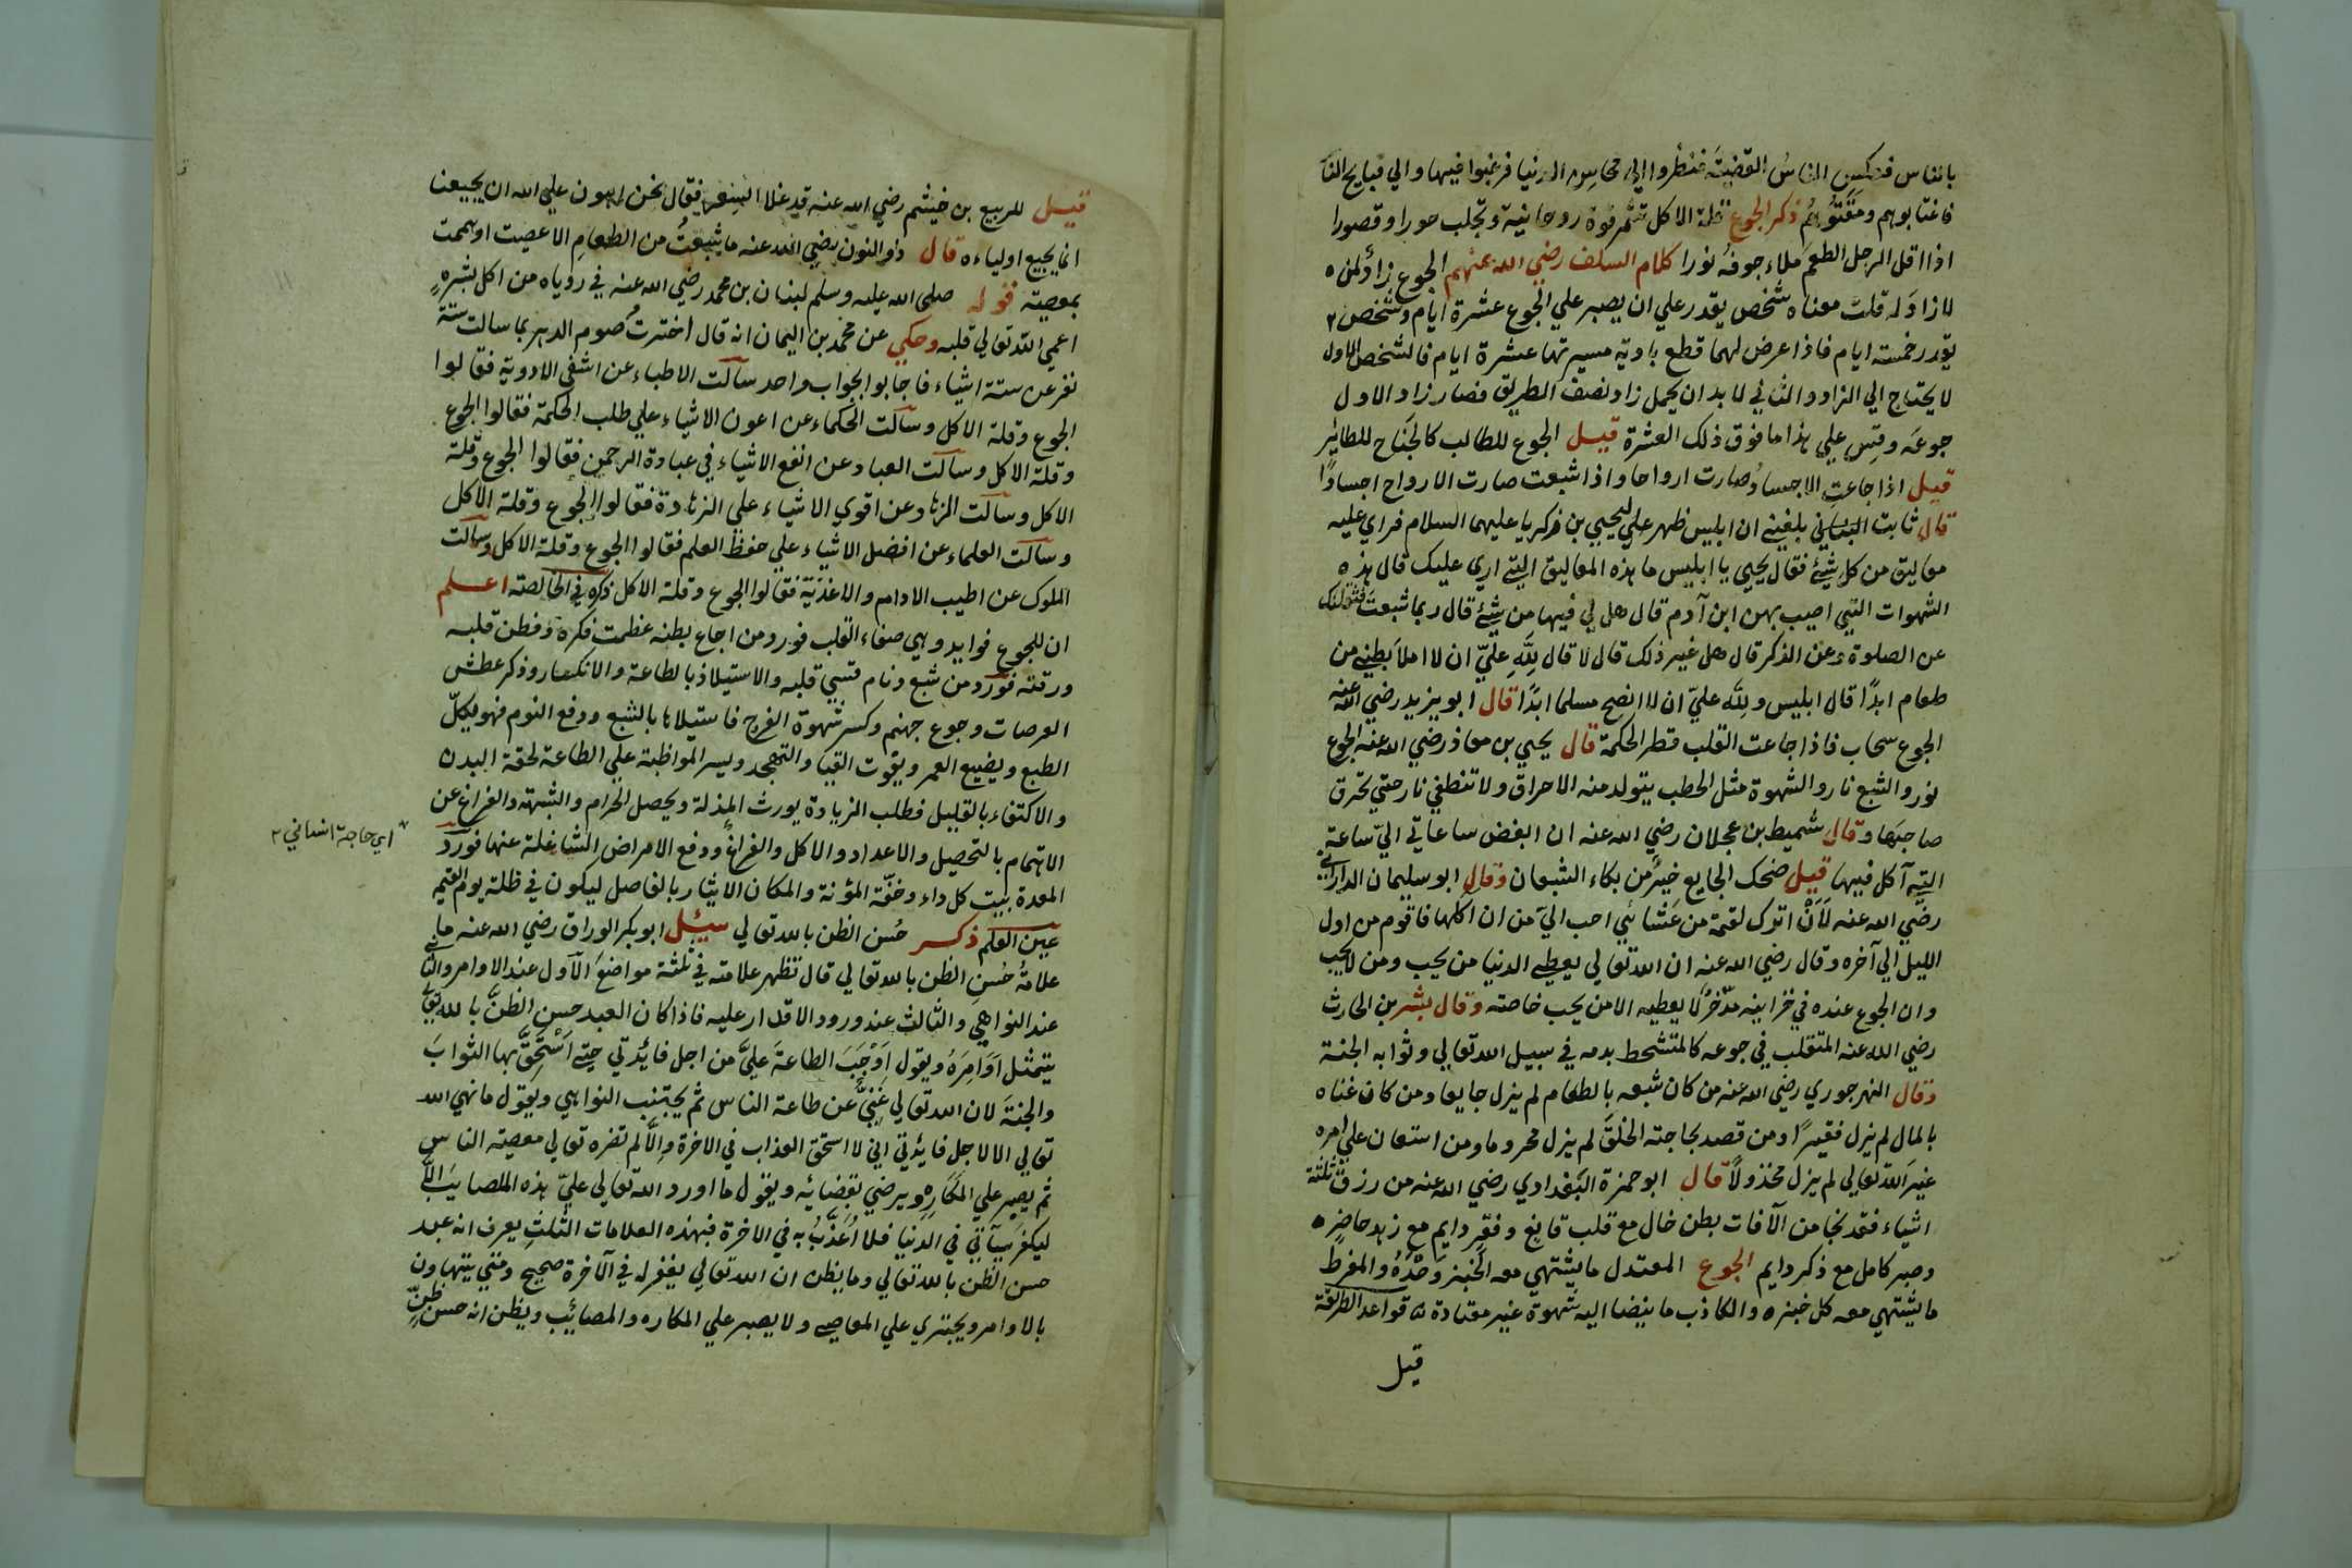 بالناس فعكس الناس القضية فنظروا الي محاسن الدنيا فرغبوا فيها والي قبايح النا
فاغتابوهم ومقتوهم ذكر الجوع قلة الاكل تثمر قوة روحانية وتجلب حورا وقصورا
اذا اقل الرجل الطعم ملاء جوفه نورا كلام السلف رضي الله عنهم الجوع زاد لمن
لا زاد له قلت معناه شخص يقدر علي ان يصبر علي الجوع عشرة ايام وشخص
يقدر خمسة ايام فاذا عرض لهما قطع بادية مسيرتها عشرة ايام فالشخص الاول
لا يحتاج الي الزاد والثاني لا بد ان يحمل زاد نصف الطريق فصار زاد الاول
جوعه وقس علي هذا ما فوق ذلك العشرة قيل الجوع للطالب كالجناح للطائر
قيل اذا جاعت الاجساد صارت ارواحا واذا شبعت صارت الارواح اجسادا
قال ثابت البناني بلغني ان ابليس ظهر علي ليحيي بن زكريا عليهما السلام فراي عليه
معاليق من كل شيئ فقال يحيي يا ابليس ما هذه المعاليق التي اري عليك قال هذه
الشهوات التي اصيب بهن ابن آدم قال هل لي فيها من شيئ قال ربما شبعت فثقلنك
عن الصلوة وعن الذكر قال هل غير ذلك قال لا قال لله علي ان لا املا بطني من
طعام ابدا قال ابليس ولله علي ان لا انصح مسلما ابدا قال ابو يزيد رضي الله عنه
الجوع سحاب فاذا جاعت القلب قطر الحكمة قال يحيي بن معاذ رضي الله عنه الجوع
نور والشبع نار والشهوة مثل الحطب يتولد منه الاحراق ولا تنطفي نار حتي تحرق
صاحبها وقال شميط بن عجلان رضي الله عنه ان ابغض ساعاتي الي ساعة
التي آكل فيها قيل ضحك الجايع خير من بكاء الشبعان وقال ابو سليمان الداراني
رضي الله عنه لأن اترك لقمة من عشائي احب الي من ان اكلها فاقوم من اول
الليل الي آخره وقال رضي الله عنه ان الله تعالي يعطي الدنيا من يحب ومن لا يحب
وان الجوع عنده في خزاينه مدخر لا يعطيه الا من يحب خاصته وقال بشر بن الحارث
رضي الله عنه المتقلب في جوعه كالمتشحط بدمه في سبيل الله تعالي وثوابه الجنة
وقال النهرجوري رضي الله عنه من كان شبعه بالطعام لم يزل جايعا ومن كان غناه
بالمال لم يزل فقيرا ومن قصد بحاجته الخلق لم يزل محروما ومن استعان علي امره
غير الله تعالي لم يزل مخذولا قال ابو حمزة البغدادي رضي الله عنه من رزق ثلثة
اشياء فقد نجا من الآفات بطن خال مع قلب قانع وفقر دايم مع زهد حاضر
وصبر كامل مع ذكر دايم الجوع المعتدل ما يشتهي معه الخبز وحده والمفرط
ما يشتهي معه كل خبزه والكاذب ما ينضا اليه شهوة غير معتادة قواعد الطريقة
قيل
قيل للربيع بن خيثم رضي الله عنه قد غلا السعر فقال نحن اهون علي الله ان يجيعنا
انما يجيع اولياءه قال ذو النون رضي الله عنه ما شبعت من الطعام الا عصيت او هممت
بمعصية قوله صلي الله عليه وسلم لبنان بن محمد رضي الله عنه في روياه من اكل بشره
اعمي الله تعالي قلبه وحكي عن محمد بن اليمان انه قال اخترت صوم الدهر بما سالت ستة
نفر عن ستة اشياء فاجابوا بجواب واحد سالت الاطباء عن اشفي الادوية فقالوا
الجوع وقلة الاكل وسالت الحكماء عن اعون الاشياء علي طلب الحكمة فقالوا الجوع
وقلة الاكل وسالت العباد عن انفع الاشياء في عبادة الرحمن فقالوا الجوع وقلة
الاكل وسالت الزهاد عن اقوي الاشياء علي الزهادة فقالوا الجوع وقلة الاكل
وسالت العلماء عن افضل الاشياء علي حفظ العلم فقالوا الجوع وقلة الاكل وسالت
الملوك عن اطيب الادام والاغذية فقالوا الجوع وقلة الاكل ذكره في الخالصة اعلم
ان للجوع فوايد وهي صفاء القلب فورد من اجاع بطنه عظمت فكره وفطن قلبه
ورقته فورد من شبع ونام قسي قلبه والاستيلاذ بالطاعة والانكسار وذكر عطش
العرصات وجوع جهنم وكسر شهوة الفرج فاستيلاها بالشبع ودفع النوم فهو يكل
الطبع ويضيع العمر ويفوت القيا والتهجد ويسر المواظبة علي الطاعة لخفة البدن
والاكتفاء بالقليل فطلب الزيادة يورث المذلة ويحصل الحرام والشبهة والفراغ عن
الاهتمام بالتحصيل والاعداد والاكل والفراغ ودفع الامراض الشاغلة عنها فورد
اي حاجة انساني
المعدة بيت كل داء وخفة المؤنة والمكان الايثار بالفاضل ليكون في ظله يوم القيمة
عين العلم ذكر حسن الظن بالله تعالي سئل ابو بكر الوراق رضي الله عنه ما
علامة حسن الظن بالله تعالي قال تظهر علامته في ثلثة مواضع الاول عند الاوامر والثاني
عند النواهي والثالث عند ورود الاقدار عليه فاذا كان العبد حسن الظن بالله تعالي
يتمثل اوامره ويقول اوجب الطاعة علي من اجل فائدتي حتي استحق بها الثواب
والجنة لان الله تعالي غني عن طاعة الناس ثم يجتنب النواهي ويقول ما نهي الله
تعالي الا لاجل فائدتي اني لا استحق العذاب في الاخرة والا لم تضره تعالي معصية الناس
ثم يصبر علي المكاره ويرضي بقضائه ويقول ما اورد الله تعالي علي هذه المصايب الا
ليكفر سيآتي في الدنيا فلا اعذب به في الاخرة فبهذه العلامات الثلث يعرف انه عبد
حسن الظن بالله تعالي وما يظن ان الله تعالي يغفر له في الآخرة صحيح ومتي يتهاون
بالاوامر ويجتري علي المعاصي ولا يصبر علي المكاره والمصائب ويظن انه حسن ظن